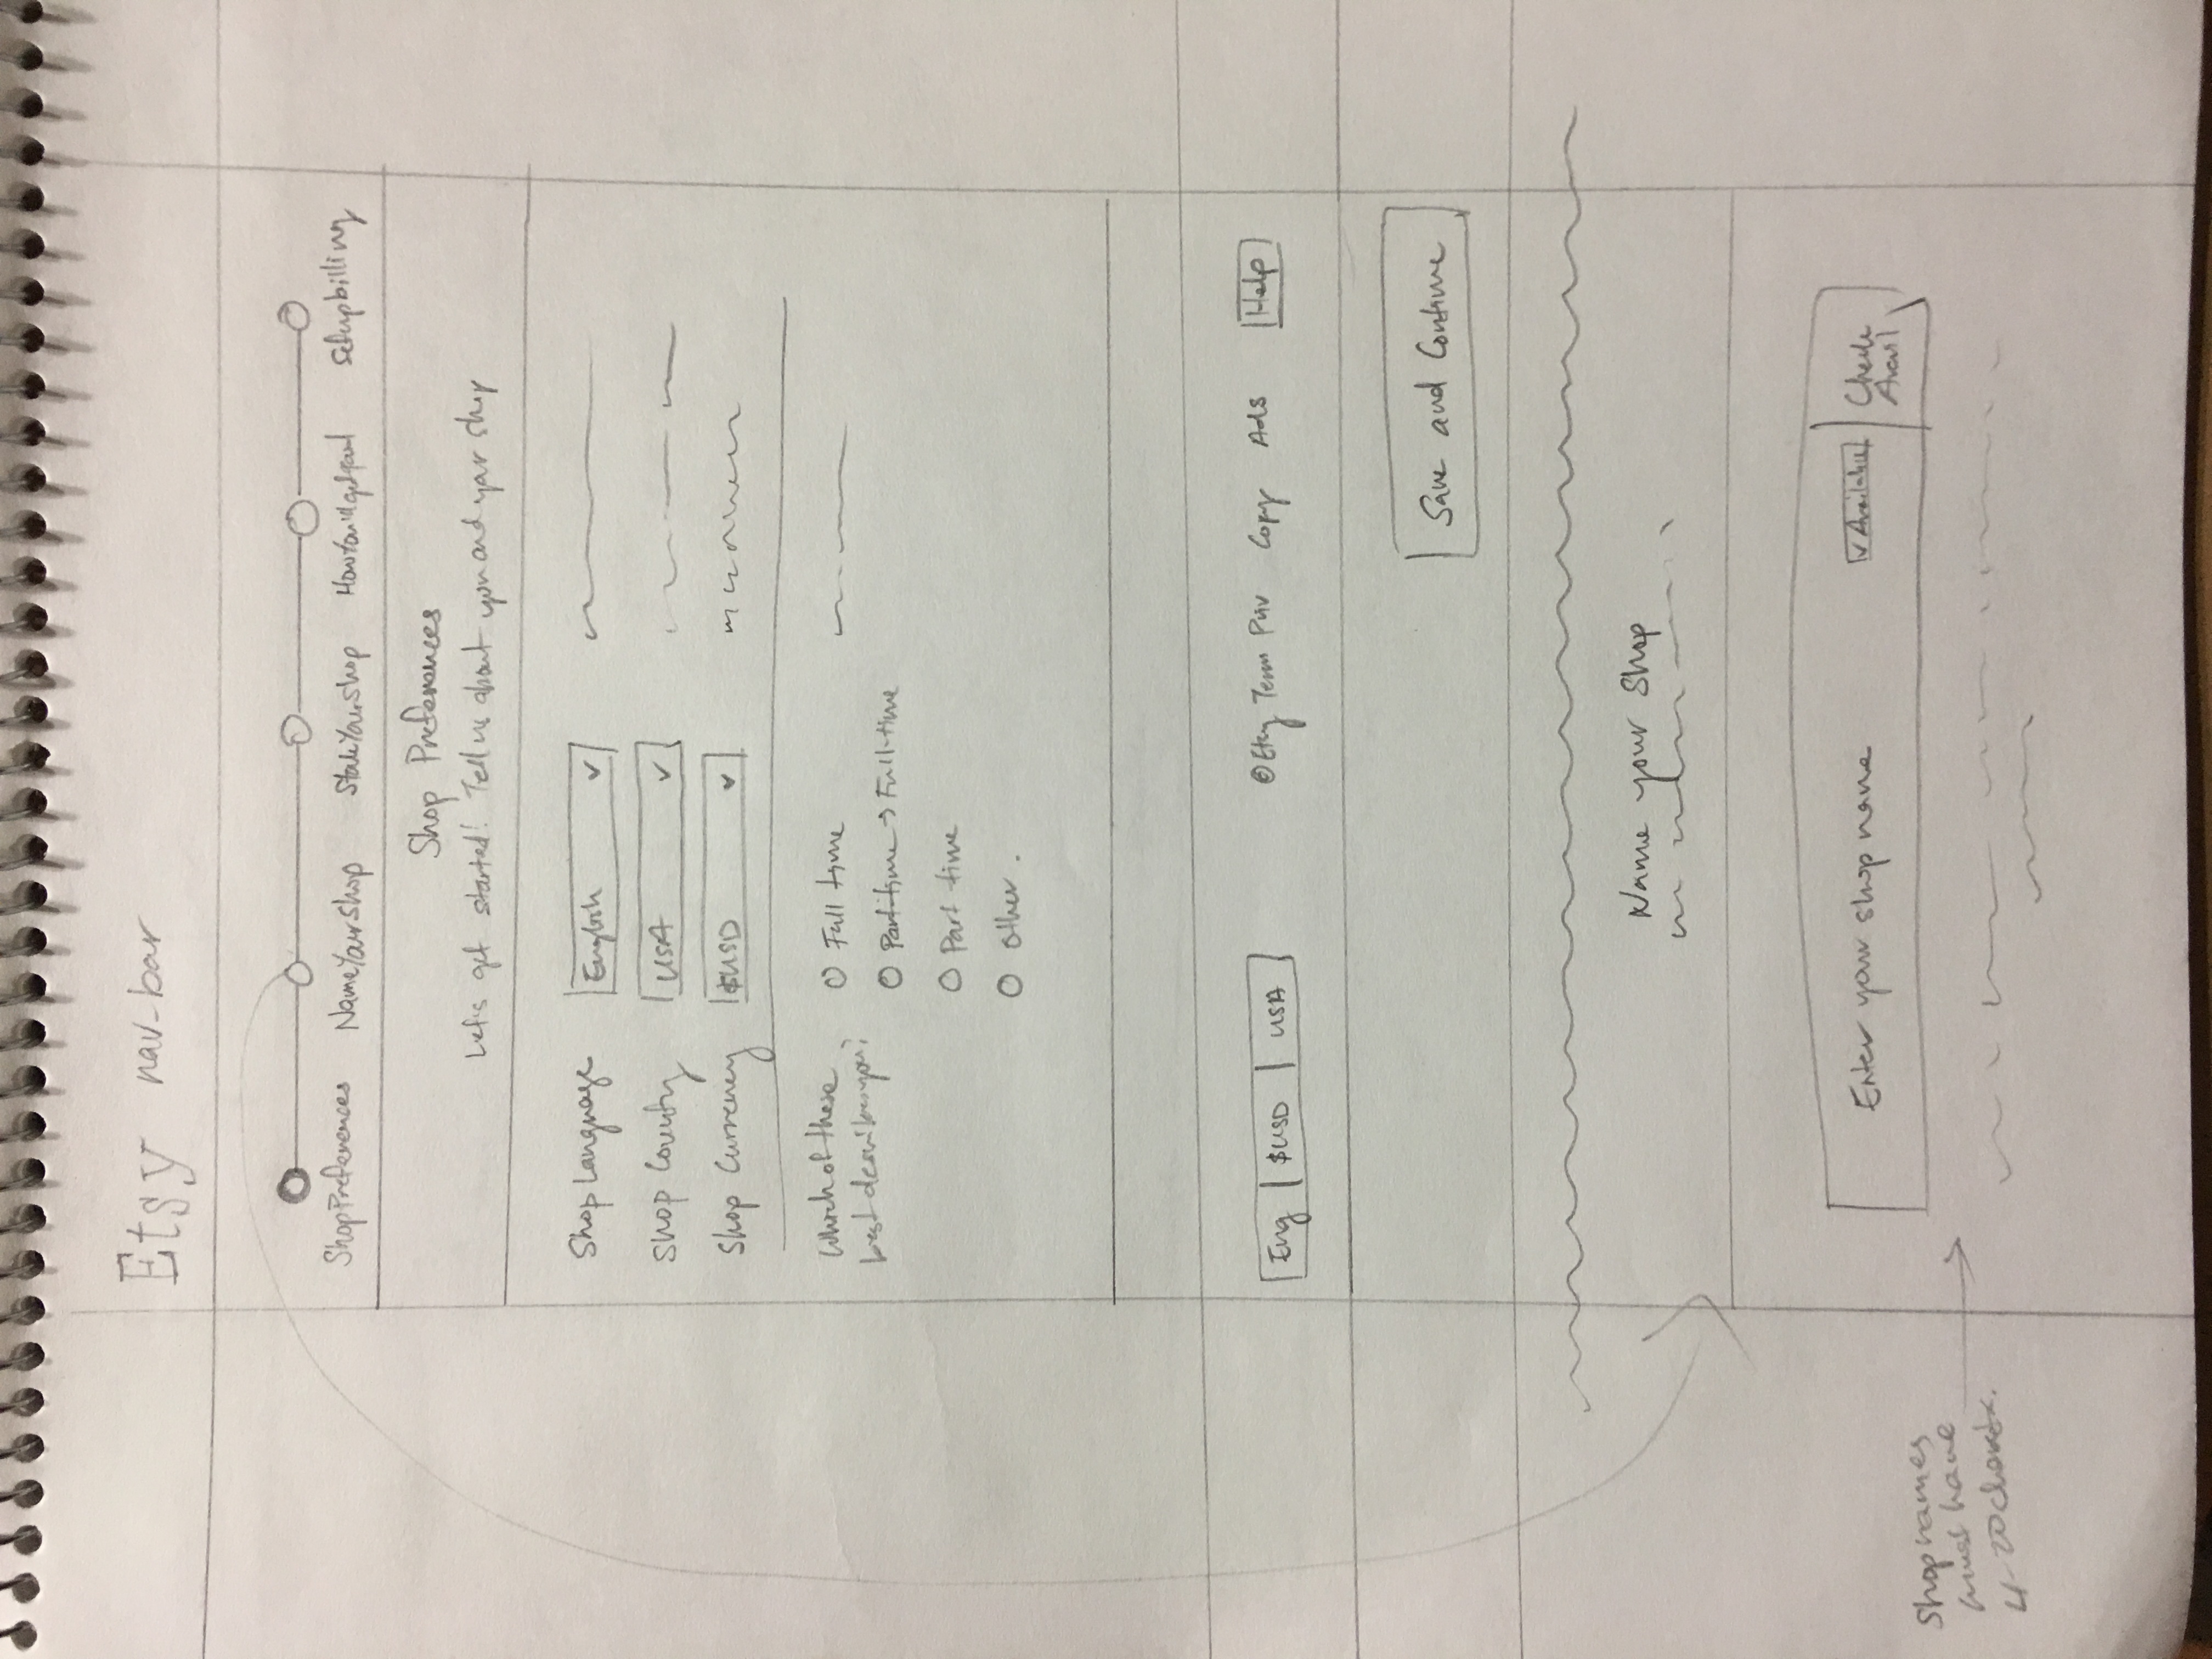 Etsy nav-bar
ShopPreferences NameYourShop YourShop HowYou'llgetpaid Setupbilling
Shop Preferences
Let's get started! Tell us about you and your shop
Shop Language English
Shop Country USA
Shop Currency $USD
Which of these Full time
best describes you?
Part time → Full-time
Part time
other.
Eng $USD USA
©Etsy Term Priv Copy Ads Help
Save and Continue
Name your Shop
Enter your shop name ✓ Available Check
Avail
Shop names
must have
4-20